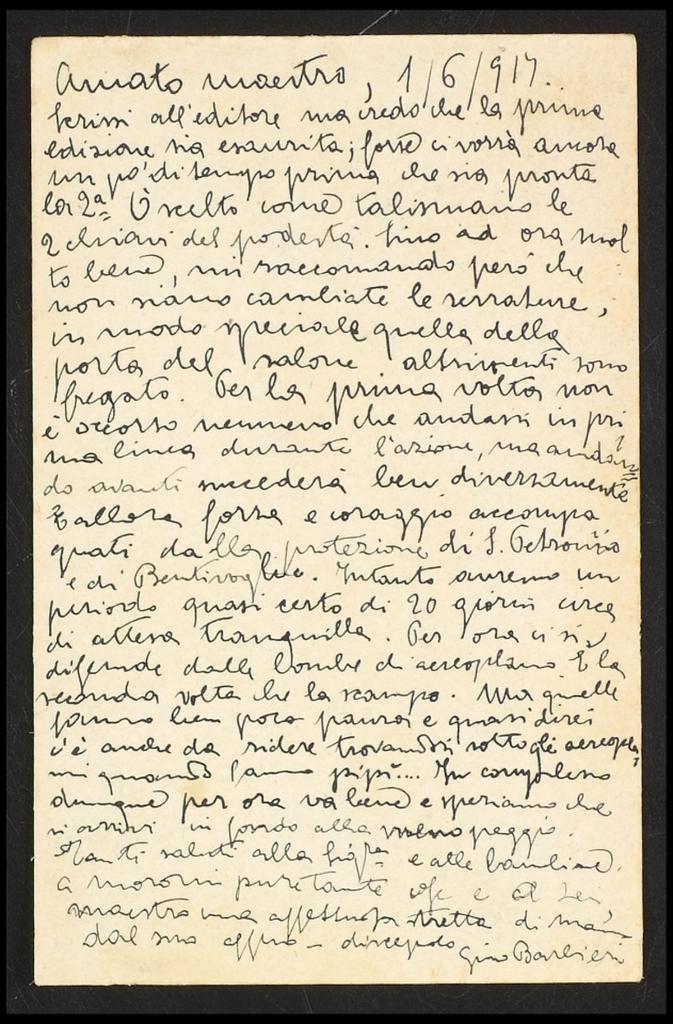 Amato maestro, 1/6/917.
scrissi all'editore ma credo che la prima
edizione sia esaurita; forse ci vorrà ancora
un po' di tempo prima che sia pronta
la 2ª. Ò scelto come talismano le
2 chiavi del podestà. Sino ad ora mol
to bene, mi raccomando però che
non siano cambiate le serrature,
in modo speciale quella della
porta del salone altrimenti sono
fregato. Per la prima volta non
è occorso nemmeno che andassi in pri
ma linea durante l'azione, ma andan
do avanti succederà ben diversamente
E allora forza e coraggio accompa
gnati dalla protezione di S. Petronio
e di Bentivoglio. Intanto avremo un
periodo quasi certo di 20 giorni circa
di attesa tranquilla. Per ora ci si
difende dalle bombe di aereoplano È la
seconda volta che la scampo. Ma quelle
fanno ben poca paura e quasi direi
c'è anche da ridere trovandosi sotto gli aereopla
ni quando fanno pipì.... In complesso
dunque per ora va bene e speriamo che
si arrivi in fondo alla meno peggio.
Tanti saluti alla Sigra e alle bambine.
a Moroni pure tante cose e a Lei
maestro una affettuosa stretta di mano
dal suo affmo - discepolo Gino Barbieri